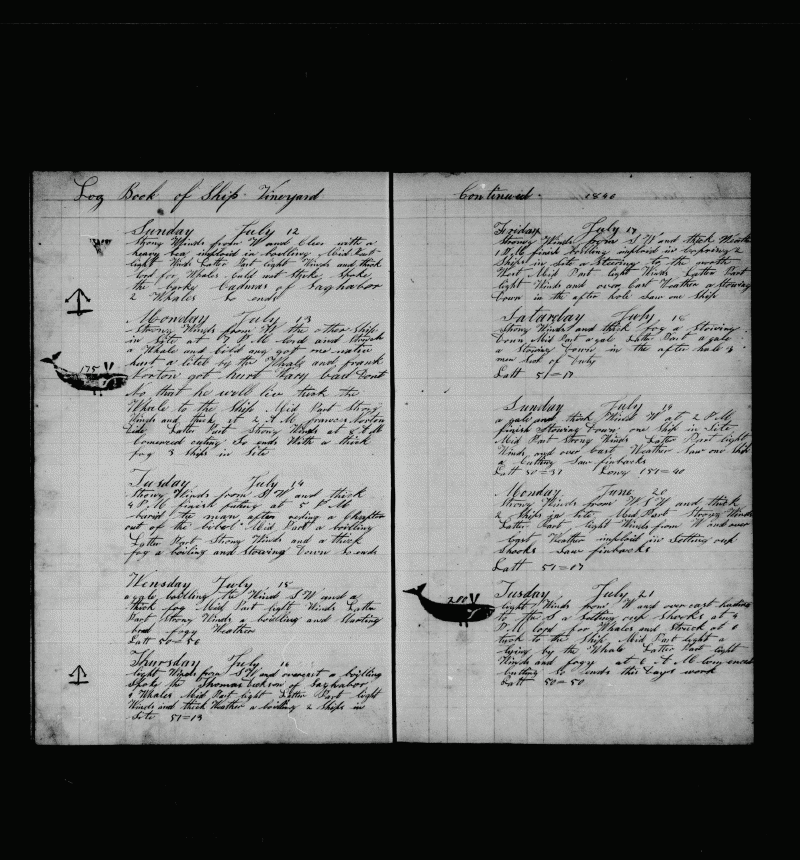 Log Book of Ship Vineyard
Sunday July 12
Strong Winds from W and Clier with a
heavy Sea imploid in boilling Mid Part
light Winds Latter Part light Winds and thick
lord for Whales Could not Strike Spoke
the Cadmus of Sagharbor
2 Whales So ends
Monday July 13
Strong Winds from W the other Ship
in Site at 7 P M lord and Struck
a Whale and kild and got one
hurt a litel by the Whale and frank
norton got hurt Vary bad Dont
No that he will live took the
Whale to the Ship Mid Part Strong
Winds and thick at 2 A M frances norton
Latter Part Strong Winds at 8 A M
Comenced cuting So ends With a thick
fog 3 Ships in Site
Tusday July 14
Strong Winds from S W and thick
4 P M finish cuting at 5 P M
buried the man after reding a Chapter
out of the bibol Mid Part a boilling
Latter Part Strong Winds and a thick
fog a boiling and Stowing Down So ends
Wensday July 15
a gale boilling the Wind S W and a
thick fog Mid Part light Winds Latter
Part Strong Winds a boilling and Starting
fogy Weather
Latt 50=56
Thursday July 16
light Winds from S W and overcast a boilling
Spoke the Thomas Dickson of Sagharbor
Whales Mid Part light Latter Part light
Winds and thick Weather a boilling 2 Ships in
Site 51=13
175
Continued 1840
Friday July 17
Strong Winds from S W and thick Weather
P M finish boilling imploid in
Ships in Site a Stearing to the north
West Mid Part light Winds Latter Part
light Winds and over Cast Weather a Stowing
Down in the after hole Saw one Ship
Saturday July 18
Strong Winds and thick fog a Stowing
Down Mid Part a gale Latter Part a gale
a Stowing Down in the after hole 3
men Sick of Duty
Latt 51=17
Sunday July 19
a gale and thick Wind W at 2 P M
finish Stowing Down one Ship in Site
Mid Part Strong Winds Latter Part light
Winds and over Cast Weather Saw one Ship
a Cutting Saw finbacks
Latt 50=31 Long 157=40
Monday June 20
Strong Winds from W S W and thick
2 Ships in Site Mid Part Strong Winds
Latter Part light Winds from W and over
Cast Weather imploid in Setting up
Shooks Saw finbacks
Latt 51=07
Tusday July 21
light Winds from W and over cast heading
to the S a Setting up Shooks at 4
P M lord for Whales and Struck at 6
took to the Ship Mid Part light a
lying by the Whale Latter Part light
Winds and fogy at 6 A M Comenced
Cutting So ends this Days work
Latt 50=50
200